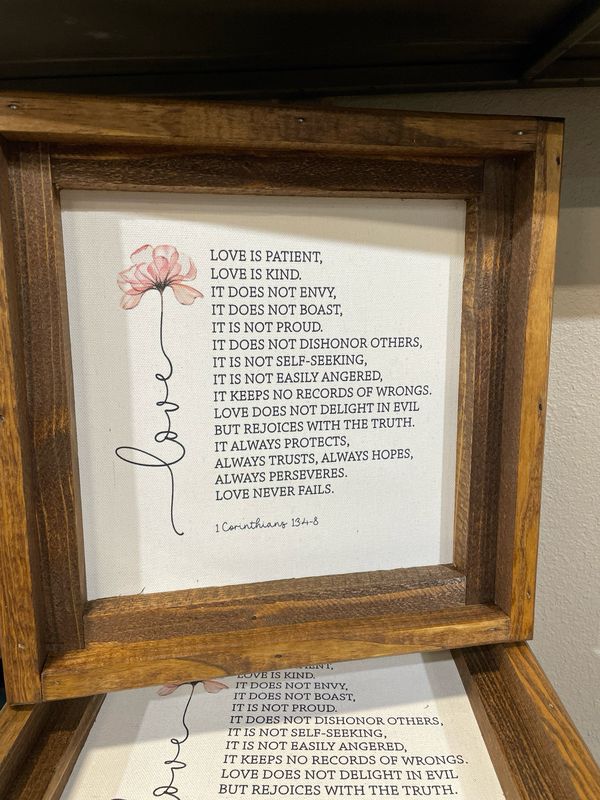 LOVE IS PATIENT,
LOVE IS KIND.
IT DOES NOT ENVY,
IT DOES NOT BOAST,
IT IS NOT PROUD.
IT DOES NOT DISHONOR OTHERS,
IT IS NOT SELF-SEEKING,
IT IS NOT EASILY ANGERED,
IT KEEPS NO RECORDS OF WRONGS.
LOVE DOES NOT DELIGHT IN EVIL
BUT REJOICES WITH THE TRUTH.
IT ALWAYS PROTECTS,
ALWAYS TRUSTS, ALWAYS HOPES,
ALWAYS PERSEVERES.
LOVE NEVER FAILS.
1 Corinthians 13:4-8
love
LOVE IS KIND.
IT DOES NOT ENVY,
IT DOES NOT BOAST,
IT IS NOT PROUD.
IT DOES NOT DISHONOR OTHERS,
IT IS NOT SELF-SEEKING,
IT IS NOT EASILY ANGERED,
IT KEEPS NO RECORDS OF WRONGS.
LOVE DOES NOT DELIGHT IN EVIL
BUT REJOICES WITH THE TRUTH.
love